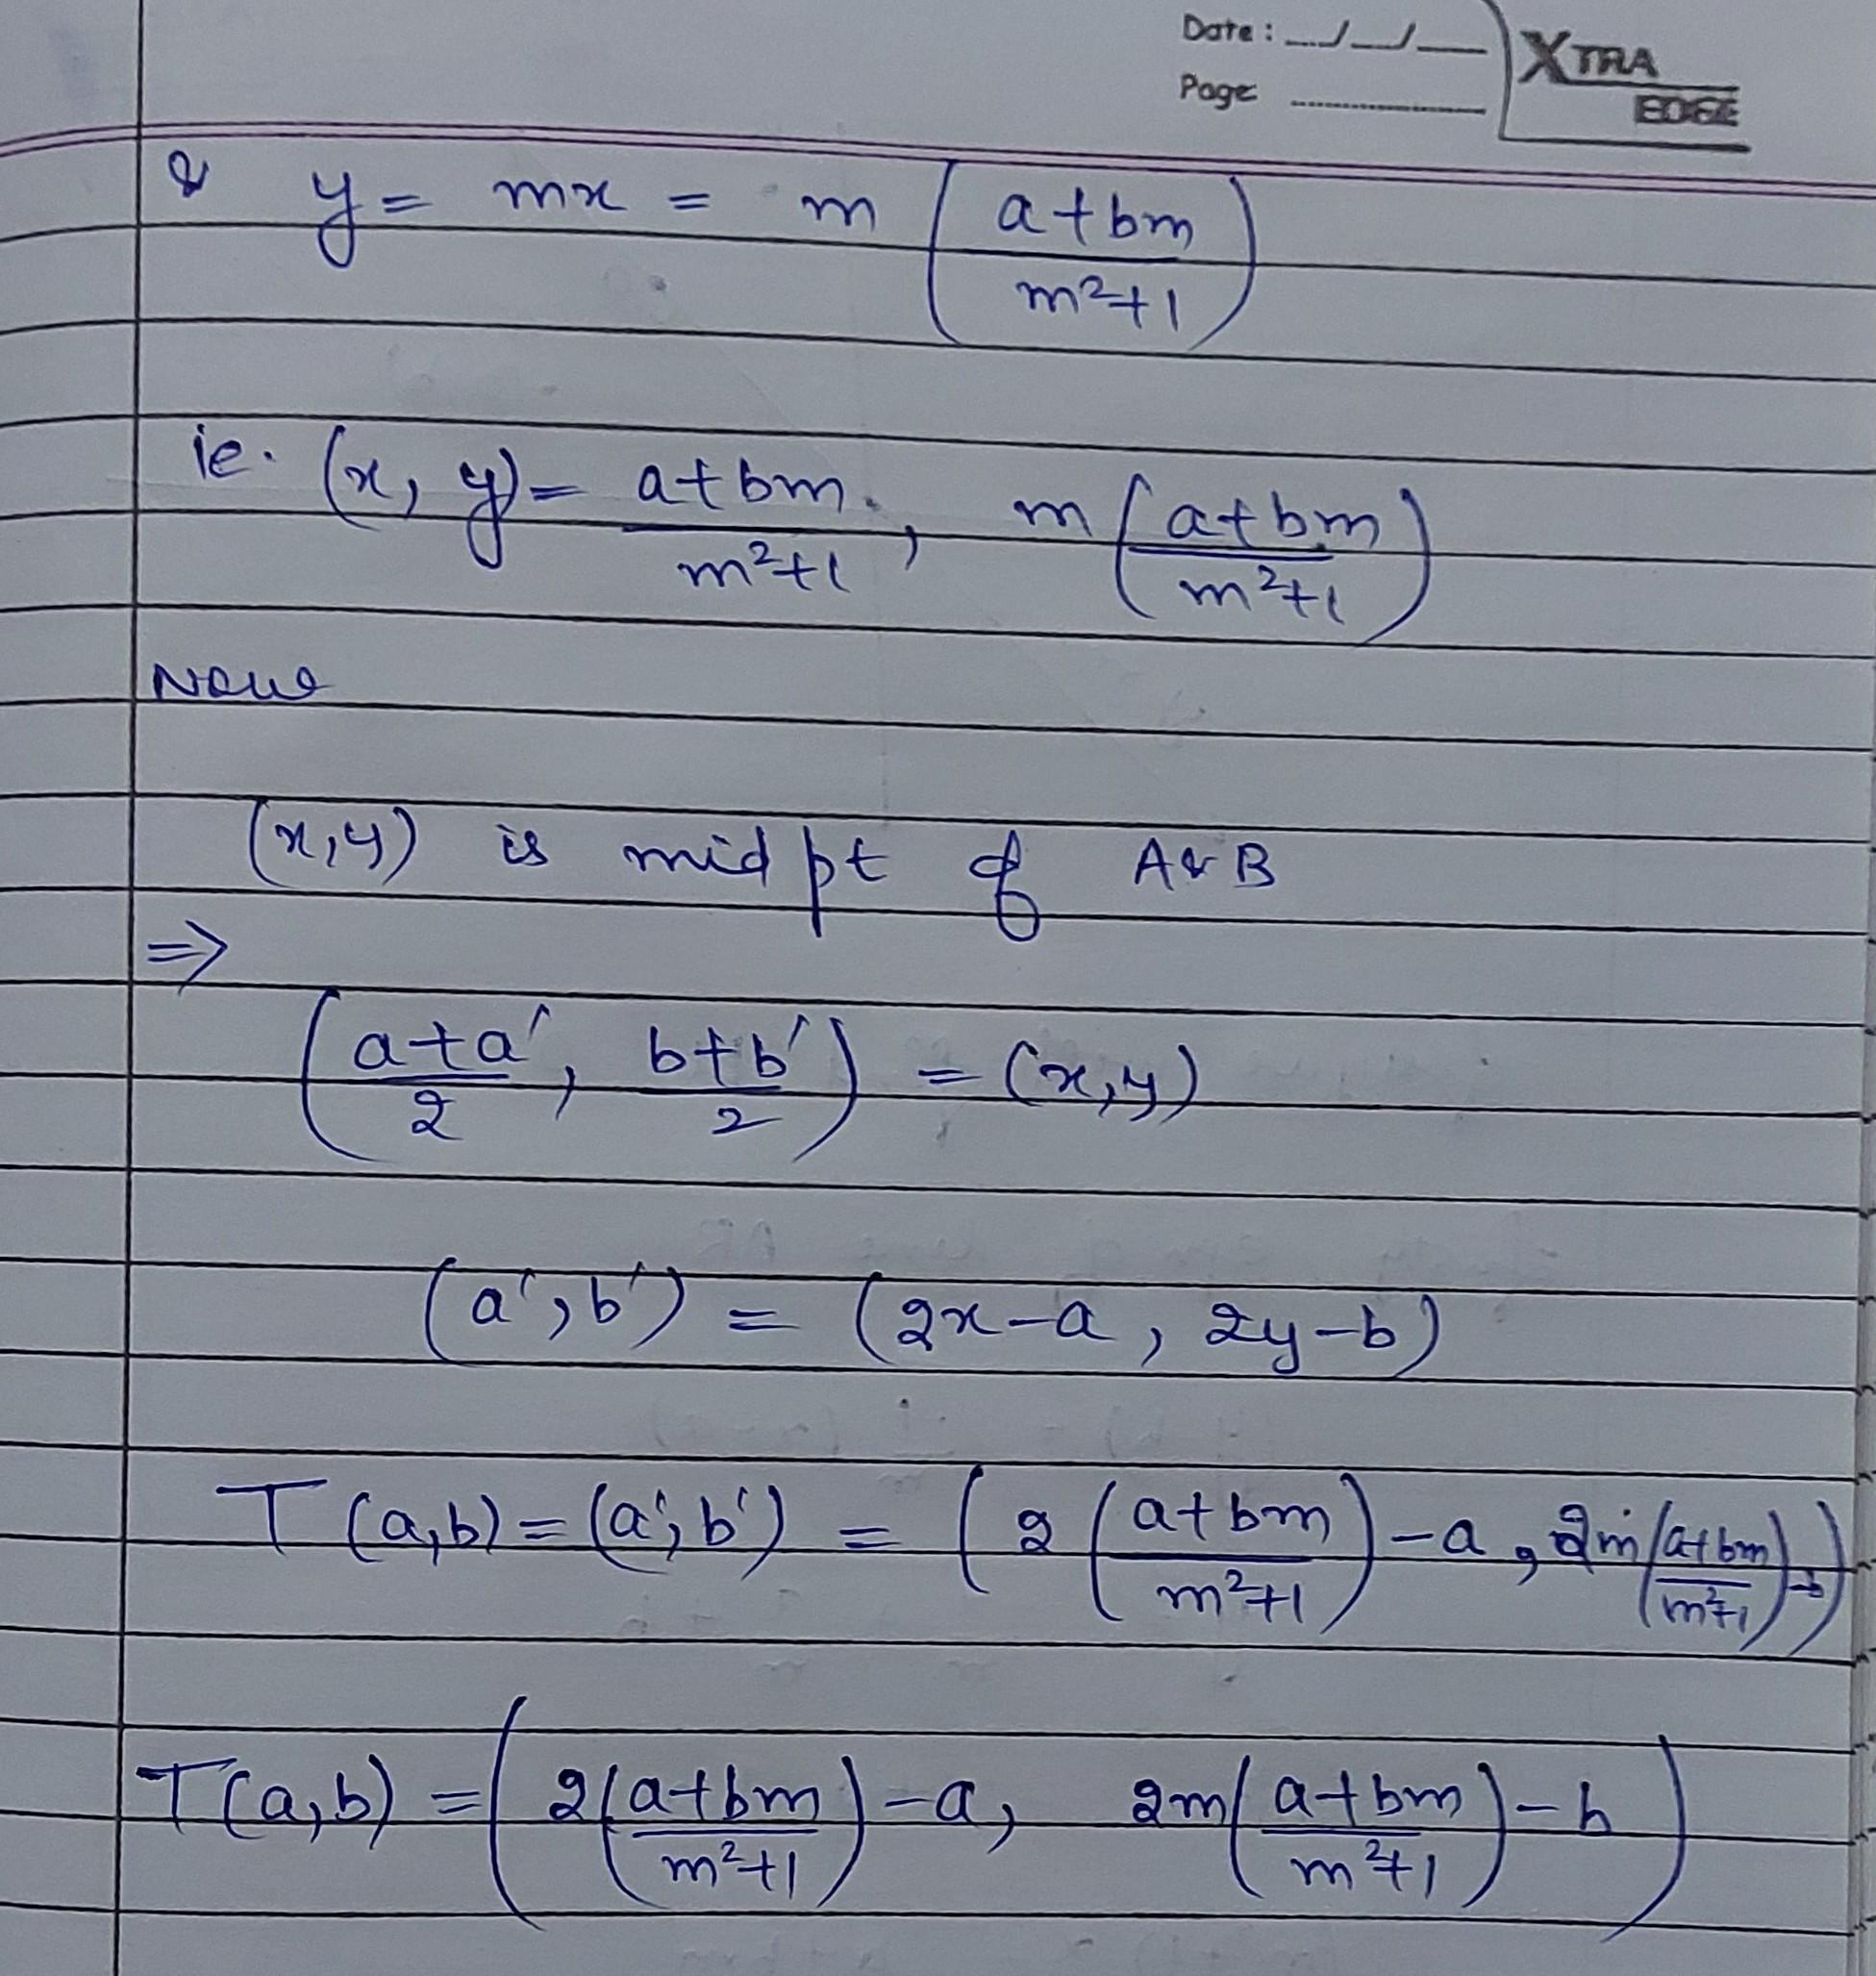 Date : __/__/__
Page ______
XTRA EDGE
& y = mx = m ( (a+bm)/(m²+1) )
ie. (x, y) = (a+bm)/(m²+1) , m ( (a+bm)/(m²+1) )
Now
(x,y) is mid pt of A & B
⇒
( (a+a')/2 , (b+b')/2 ) = (x,y)
(a', b') = (2x-a , 2y-b)
T (a,b) = (a', b') = ( 2 ( (a+bm)/(m²+1) ) -a , 2m ( (a+bm)/(m²+1) ) -b )
T(a,b) = ( 2 ( (a+bm)/(m²+1) ) -a, 2m ( (a+bm)/(m²+1) ) -b )